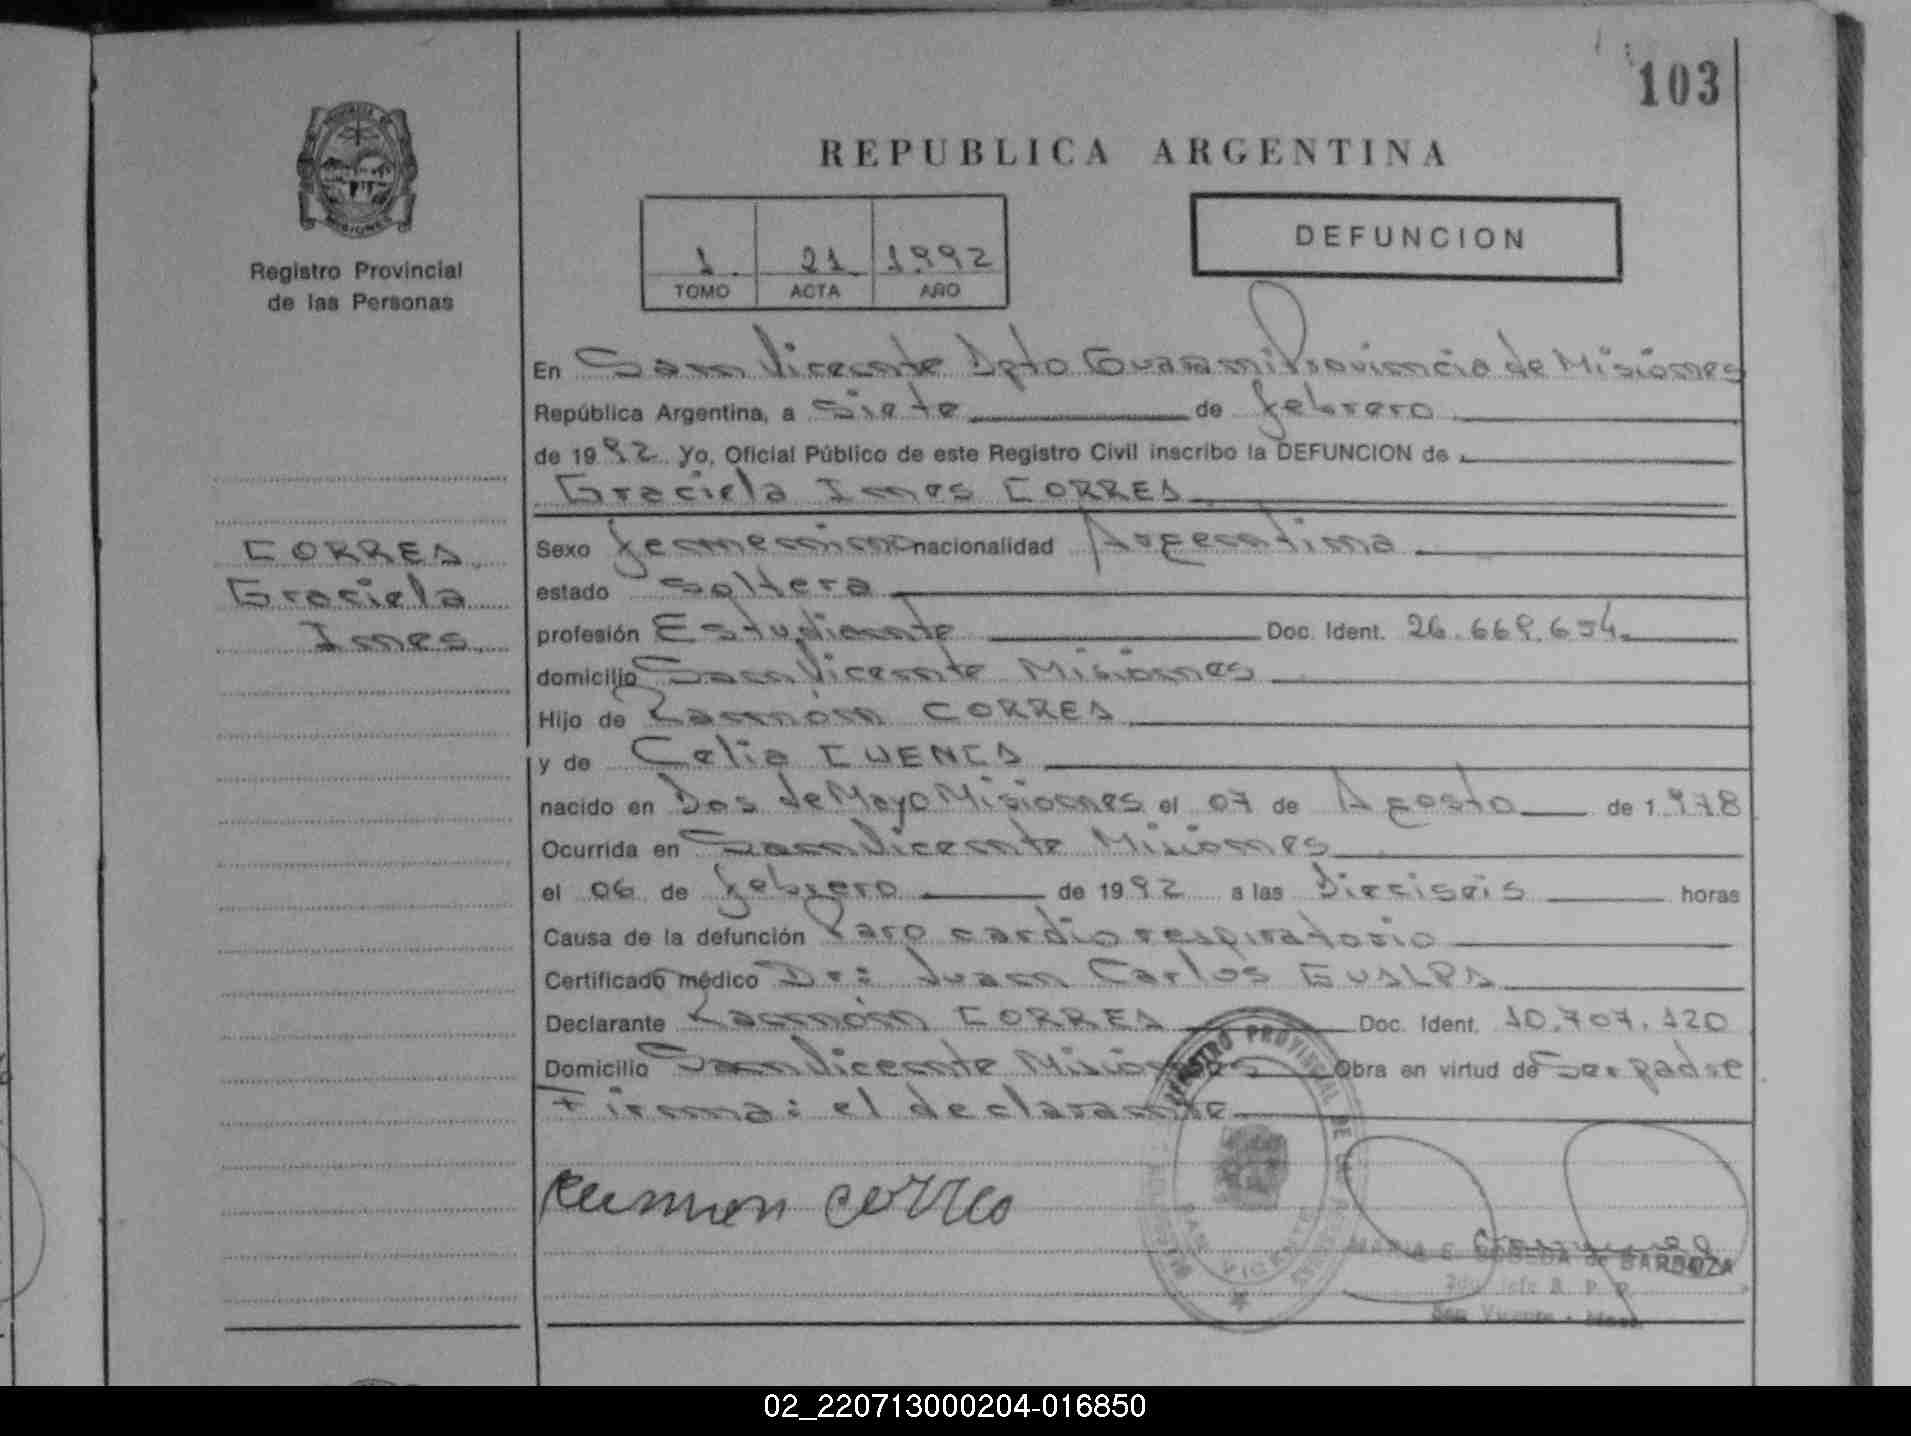 103
REPUBLICA ARGENTINA
Registro Provincial
de las Personas
1 21 1992
TOMO ACTA AÑO
DEFUNCION
En San Vicente Dpto Guarani Provincia de Misiones
República Argentina, a Siete de febrero
de 1992 yo, Oficial Público de este Registro Civil inscribo la DEFUNCION de
Graciela Ines CORREA
CORREA
Graciela
Ines
Sexo femenino nacionalidad Argentina
estado soltera
profesión Estudiante Doc. Ident. 26.669.654
domicilio San Vicente Misiones
Hijo de Ramón CORREA
y de Celia CUENCA
nacido en Dos de Mayo Misiones el 07 de Agosto de 1.978
Ocurrida en San Vicente Misiones
el 06 de febrero de 1992 a las Dieciseis horas
Causa de la defunción Paro cardio respiratorio
Certificado médico Dr: Juan Carlos GUALPA
Declarante Ramón CORREA Doc. Ident. 10.707.120
Domicilio San Vicente Misiones Obra en virtud de Ser padre
Firma: el declarante
Ramon Correa
REGISTRO PROVINCIAL DE LAS PERSONAS
SAN VICENTE
MISIONES
MARIA E. de BARBOZA
2do Jefe R. P. P.
San Vicente - Mnes.
02_220713000204-016850